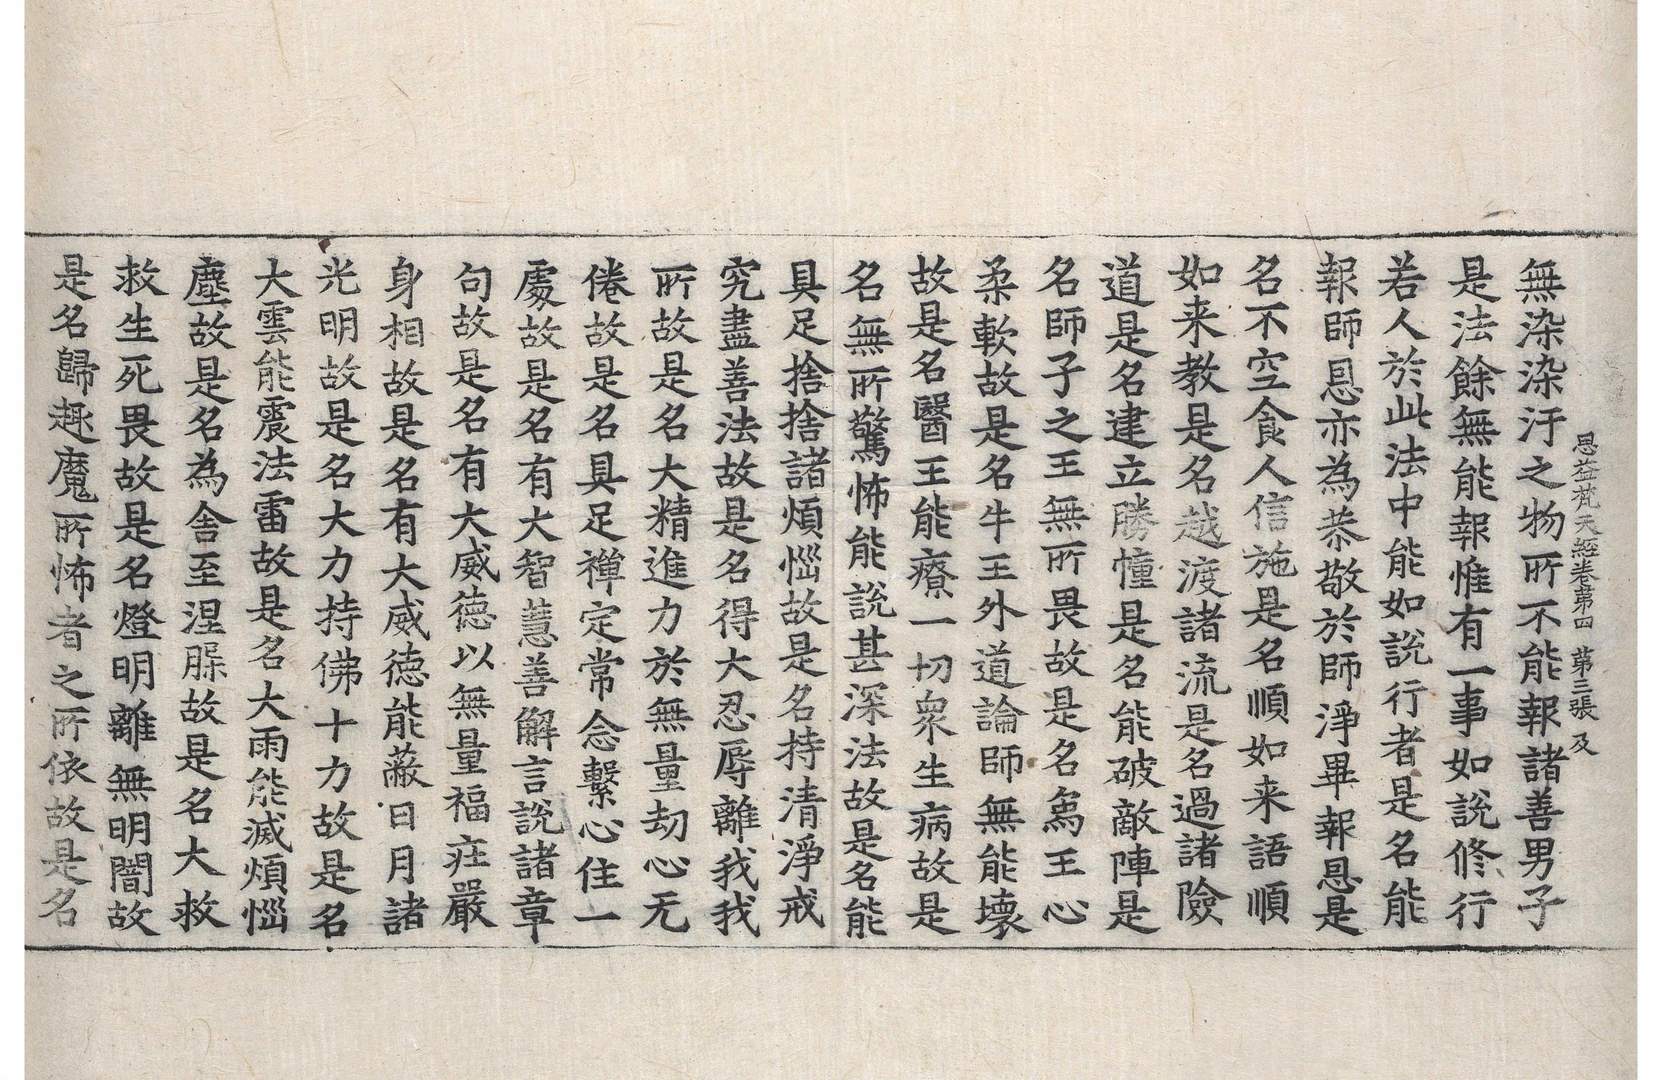 思益梵天經卷第四　第三張　及
無染染汙之物所不能報諸善男子
是法餘無能報惟有一事如說修行
若人於此法中能如說行者是名能
報師恩亦為恭敬於師淨畢報恩是
名不空食人信施是名順如来語順
如来教是名越渡諸流是名過諸險
道是名建立勝幢是名能破敵陣是
名師子之王無所畏故是名為王心
柔軟故是名牛王外道論師無能壞
故是名醫王能療一切衆生病故是
名無所驚怖能說甚深法故是名能
具足捨捨諸煩惱故是名持清淨戒
究盡善法故是名得大忍辱離我我
所故是名大精進力於無量劫心无
倦故是名具足禪定常念繫心住一
處故是名有大智慧善解言說諸章
句故是名有大威德以無量福莊嚴
身相故是名有大威德能蔽日月諸
光明故是名大力持佛十力故是名
大雲能震法雷故是名大雨能滅煩惱
塵故是名為舍至涅槃故是名大救
救生死畏故是名燈明離無明闇故
是名歸趣魔所怖者之所依故是名